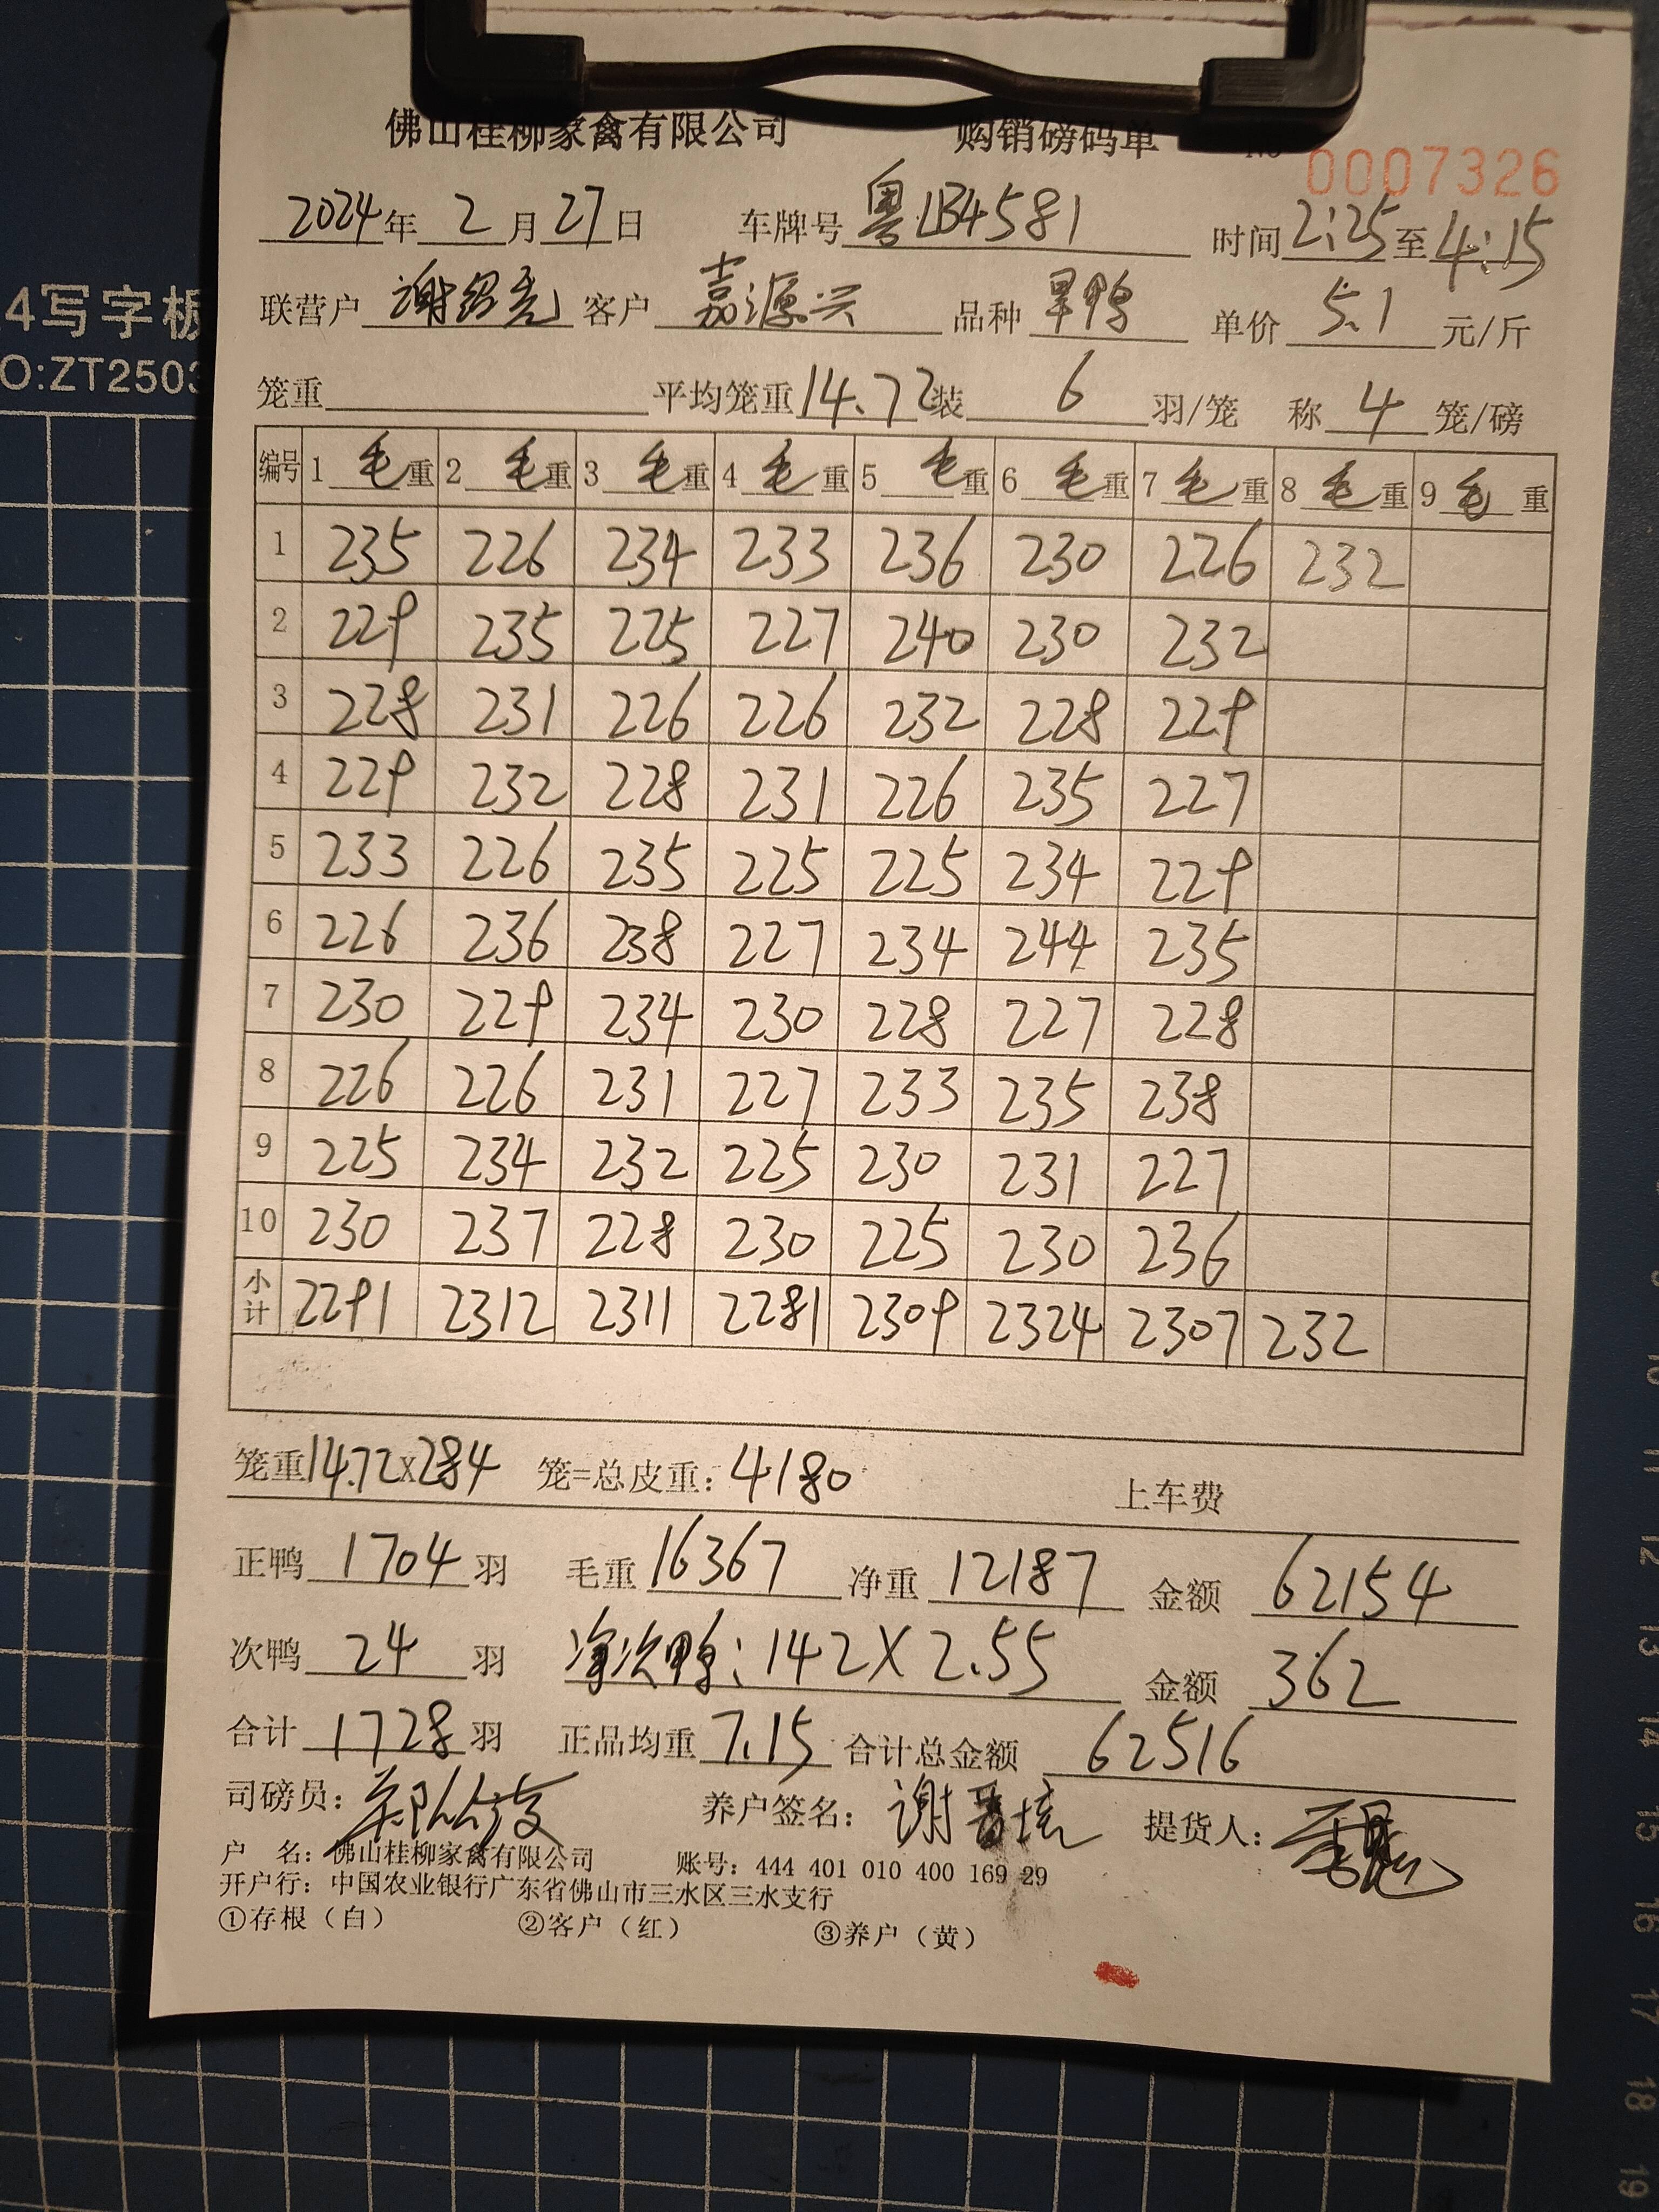 佛山桂柳家禽有限公司 购销磅码单 No 0007326
2024年 2 月 27 日 车牌号 粤LB4581 时间 2:25 至 4:15
联营户 谢绍亮 客户 嘉源兴 品种 旱鸭 单价 5.1 元/斤
笼重 平均笼重 14.72 装 6 羽/笼 称 4 笼/磅
编号 1 毛重 2 毛重 3 毛重 4 毛重 5 毛重 6 毛重 7 毛重 8 毛重 9 毛重
1 235 226 234 233 236 230 226 232
2 229 235 225 227 240 230 232
3 228 231 226 226 232 228 229
4 229 232 228 231 226 235 227
5 233 226 235 225 225 234 229
6 226 236 238 227 234 244 235
7 230 229 234 230 228 227 228
8 226 226 231 227 233 235 238
9 225 234 232 225 230 231 227
10 230 237 228 230 225 230 236
小计 2291 2312 2311 2281 2309 2324 2307 232
笼重 14.72X284 笼=总皮重: 4180 上车费
正鸭 1704 羽 毛重 16367 净重 12187 金额 62154
次鸭 24 羽 净次鸭: 142X2.55 金额 362
合计 1728 羽 正品均重 7.15 合计总金额 62516
司磅员: 养户签名: 谢 提货人:
户 名: 佛山桂柳家禽有限公司 账号: 444 401 010 400 169 29
开户行: 中国农业银行广东省佛山市三水区三水支行
①存根（白） ②客户（红） ③养户（黄）
4写字板
O:ZT2503
9
10
11
12
13
14
15
16
17
18
19